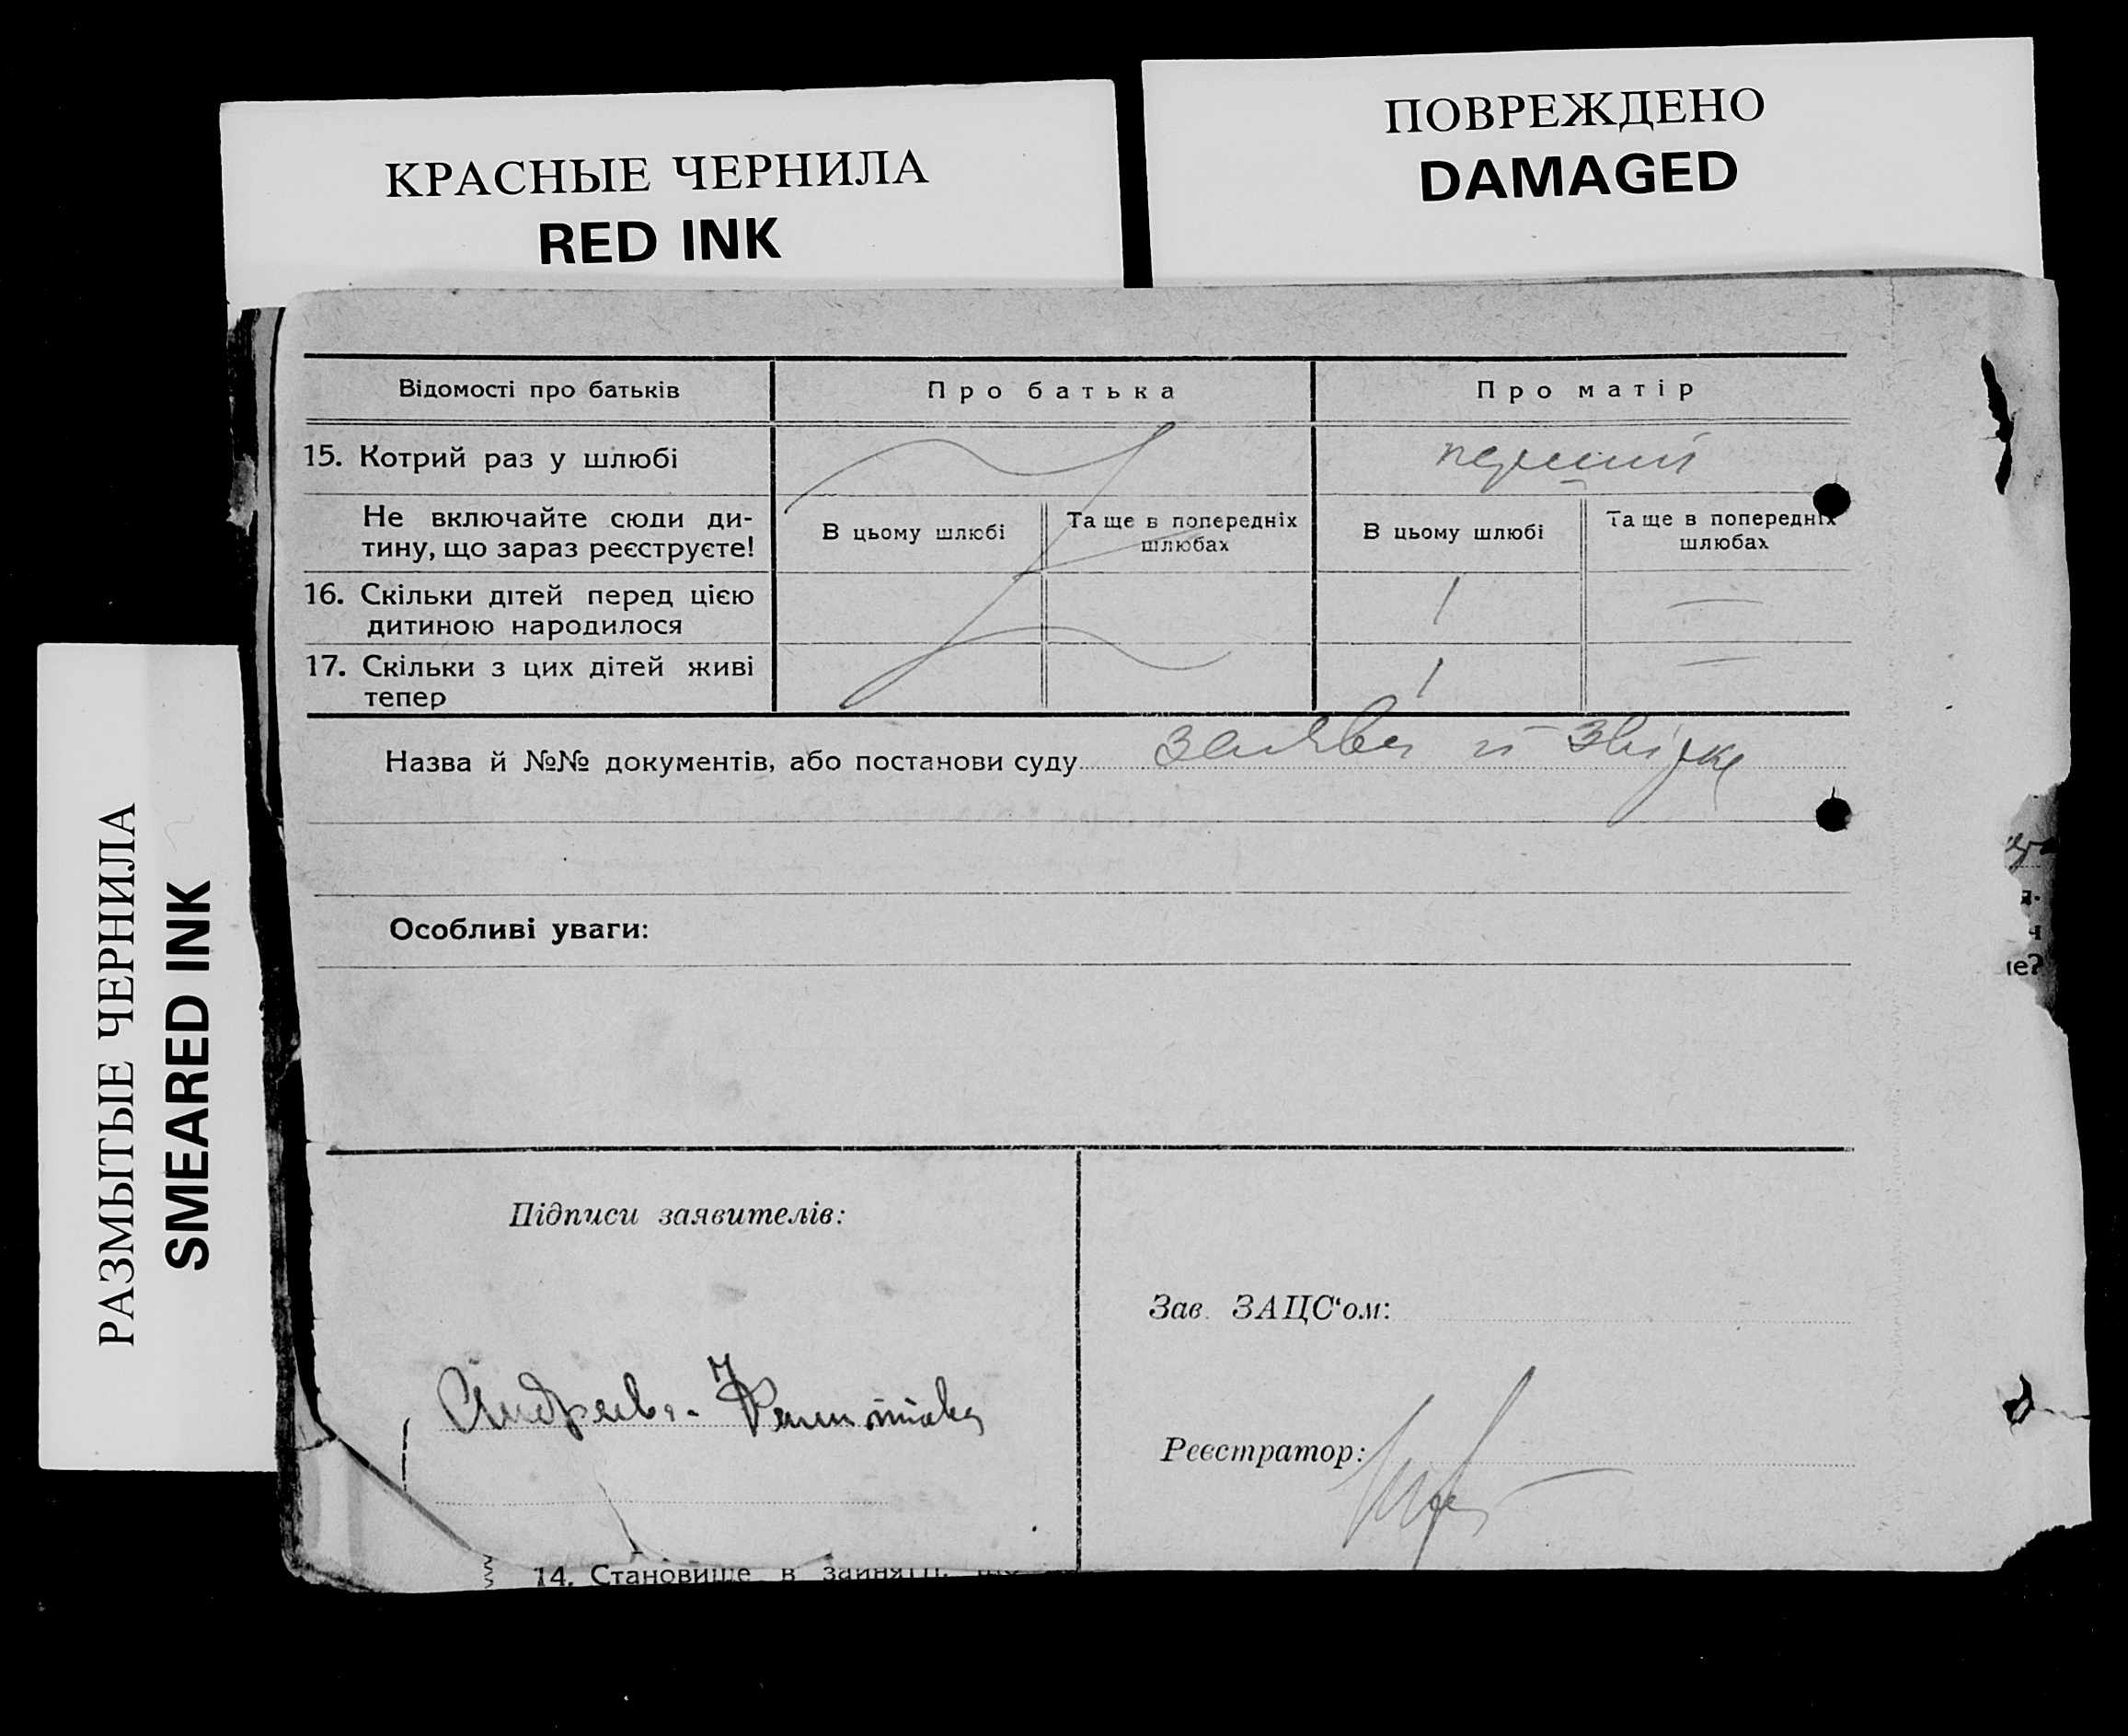 КРАСНЫЕ ЧЕРНИЛА
RED INK
ПОВРЕЖДЕНО
DAMAGED
РАЗМЫТЫЕ ЧЕРНИЛА
SMEARED INK
Відомості про батьків
Про батька
Про матір
15. Котрий раз у шлюбі
перший
Не включайте сюди ди-
тину, що зараз реєструєте!
В цьому шлюбі
Та ще в попередніх
шлюбах
В цьому шлюбі
Та ще в попередніх
шлюбах
16. Скільки дітей перед цією
дитиною народилося
1
—
17. Скільки з цих дітей живі
тепер
1
—
Назва й №№ документів, або постанови суду заява й
Особливі уваги:
Підписи заявителів:
Зав. ЗАЦС'ом:
Реєстратор:
14. Становище в занятті,